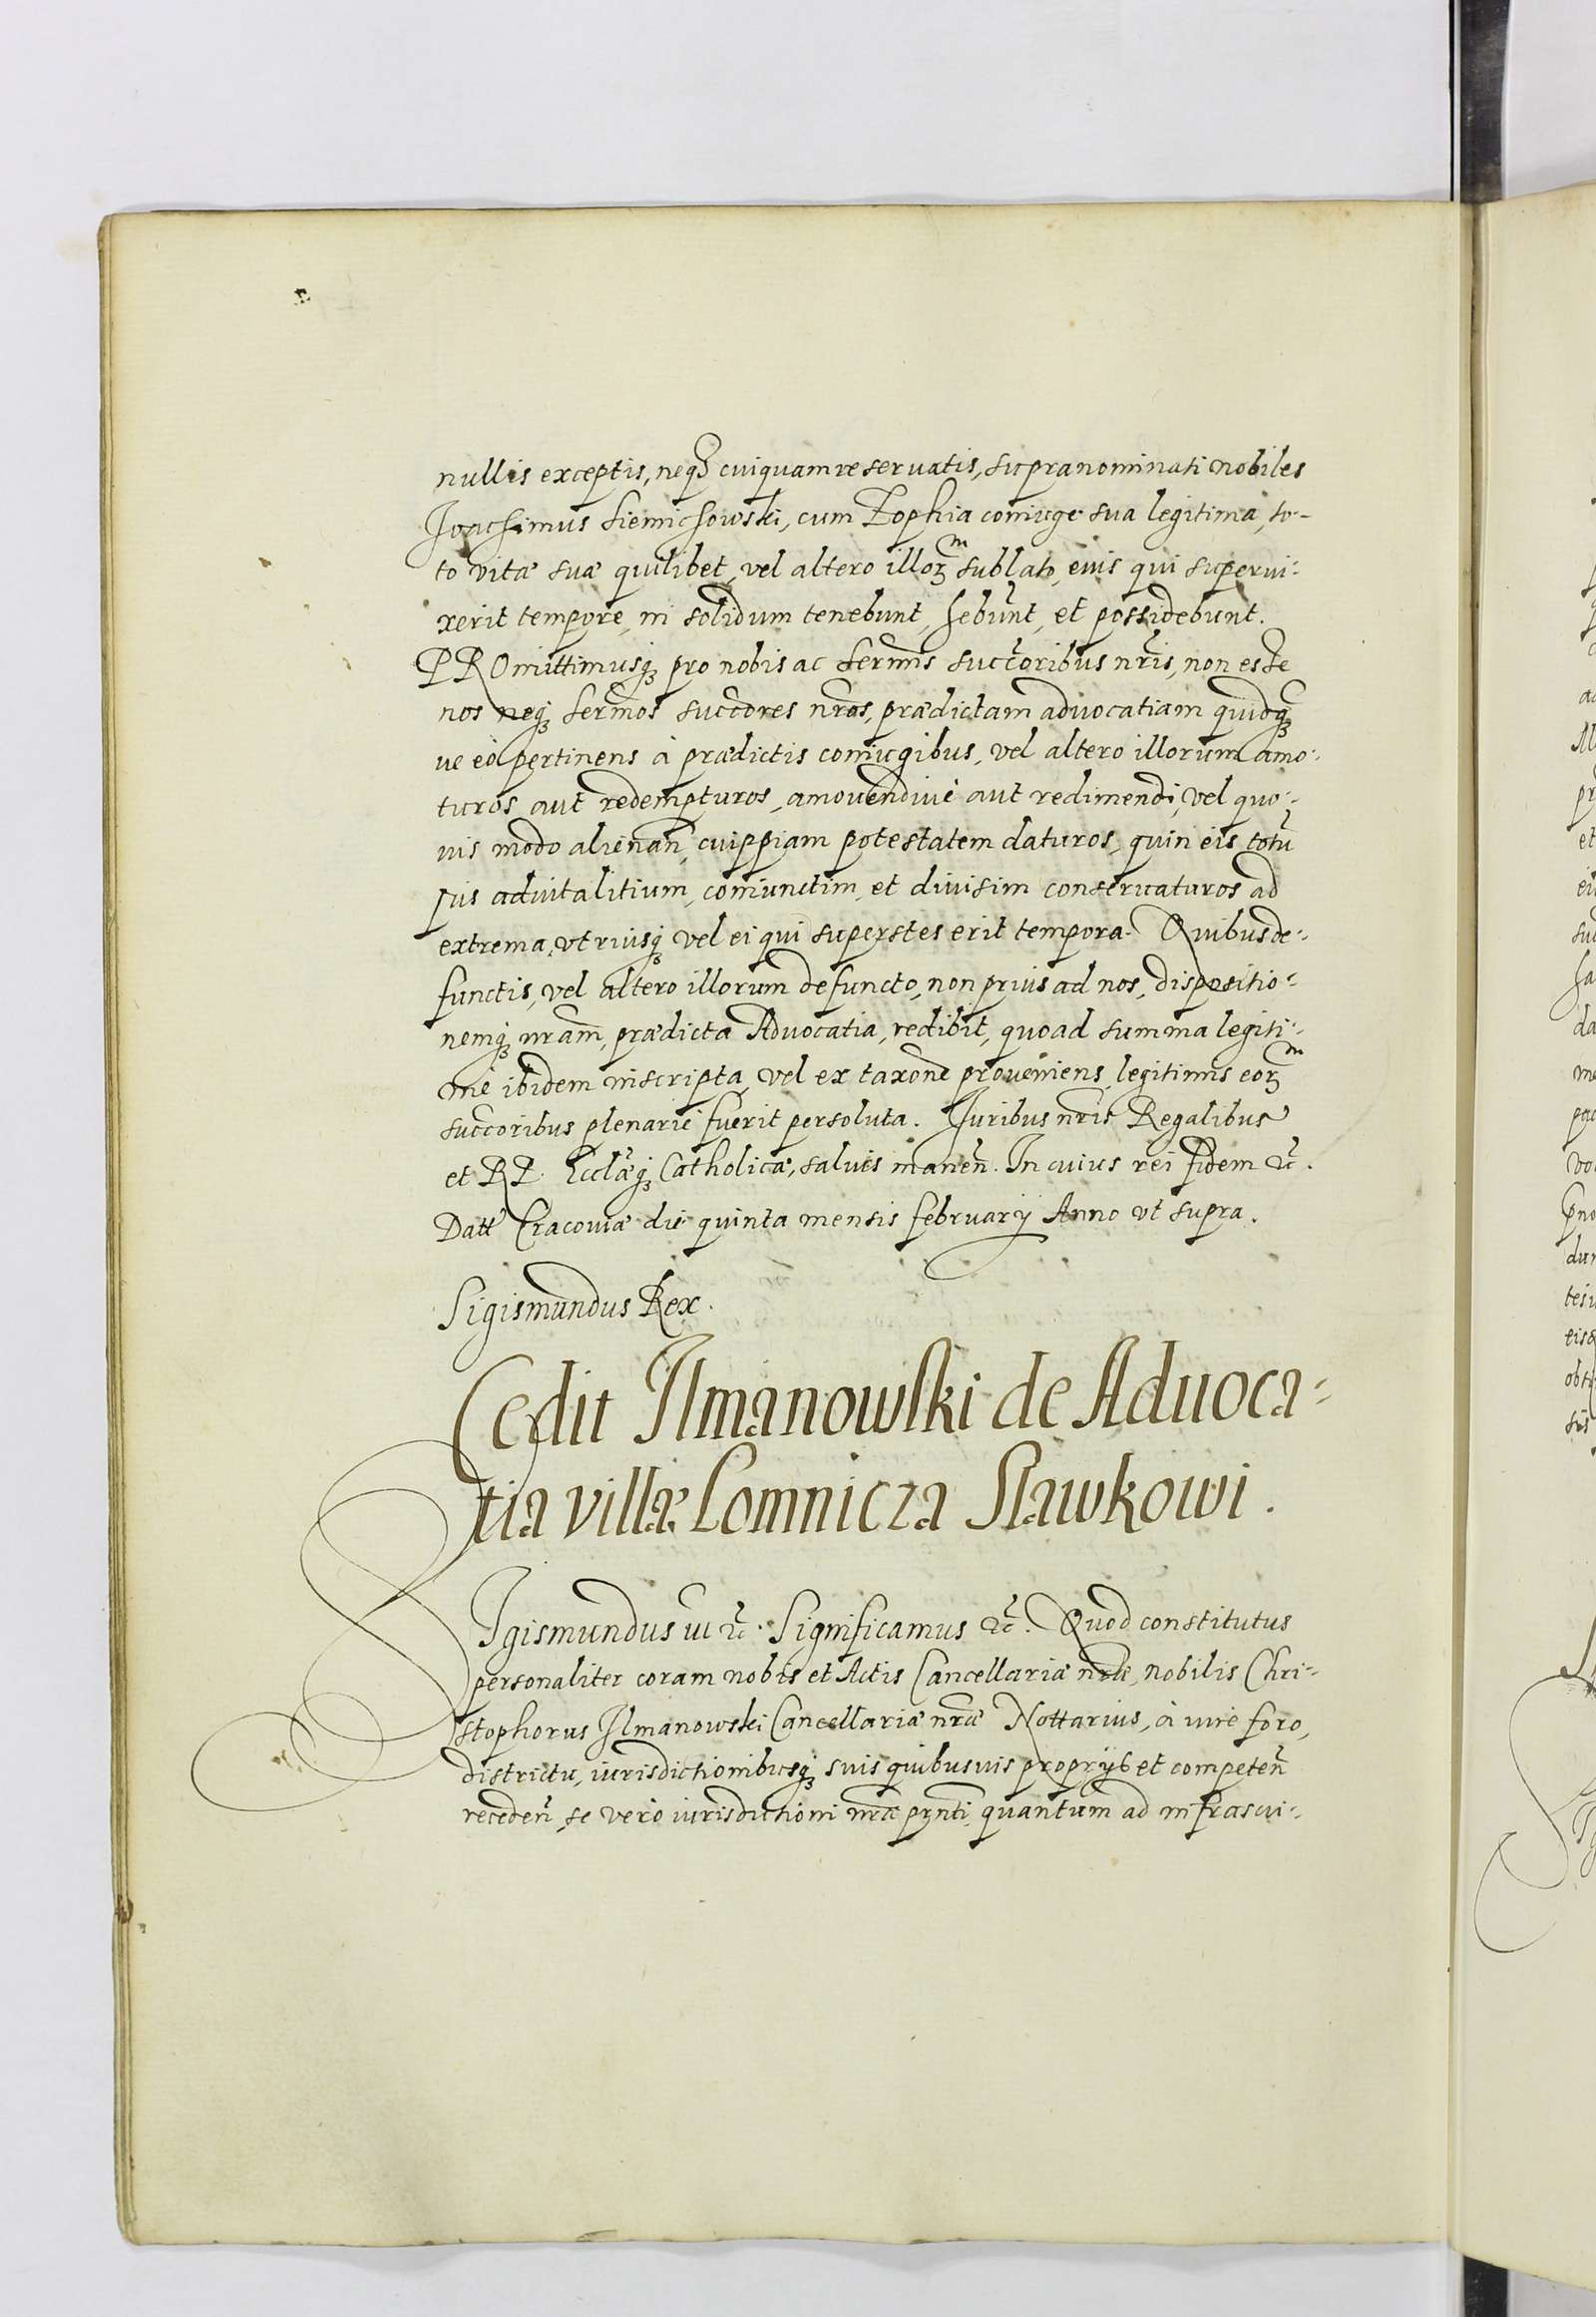 nullis exceptis, neqꝫ cuiquam reseruatis, supranominati nobiles
Joachimus Siemichowski, cum Zophia coniuge sua legitima, to-
to vitæ suæ quilibet, vel altero illoꝝm sublato, eius qui superui-
xerit tempore, in solidum tenebunt, hebūnt, et possidebunt.
PROmittimusqꝫ pro nobis ac Sermīs succōribus nrīs, non esse
nos neqꝫ Sermōs succōres nrōs, prædictam aduocatiam quidqꝫ
ue eò pertinens à prædictis coniugibus, vel altero illorum amo-
turos, aut redempturos, amouendiuè aut redimendi, vel quo-
uis modo alienan̄, cuippiam potestatem daturos, quin eis totū
ius aduitalitium, coniunctim, et diuisim conseruaturos ad
extrema, vtriusqꝫ vel ei qui superstes erit tempora. Quibus de-
functis, vel altero illorum defuncto, non prius ad nos, dispositio-
nemqꝫ nram̄, prædicta Aduocatia, redibit, quoad summa legiti-
mè ibidem inscripta, vel ex taxōne proueniens, legitimis eoꝝm
succōribus plenariè fuerit persoluta. Juribus nrīs Regalibus
et RP. Ecclǣqꝫ Catholicæ, saluis manen̄. In cuius rei fidem ꝛc̄.
Datt Cracouiæ die quinta mensis februarij Anno vt supra.
Sigismundus Rex.
Cedit Ilmanowski de Aduoca-
tia villæ Lomnicza Slawkowi.
SIgismundus III ꝛc̄. Significamus ꝛc̄. Quod constitutus
personaliter coram nobis et Actis Cancellariæ nrǣ, nobilis Chri-
stophorus Ilmanowski Cancellariæ nrǣ Nottarius, à iure foro,
districtu, iurisdictionibusqꝫ suis quibusuis proprijs et competen̄
receden̄, se verò iurisdictioni nrǣ prn̄ti, quantum ad infrascri-